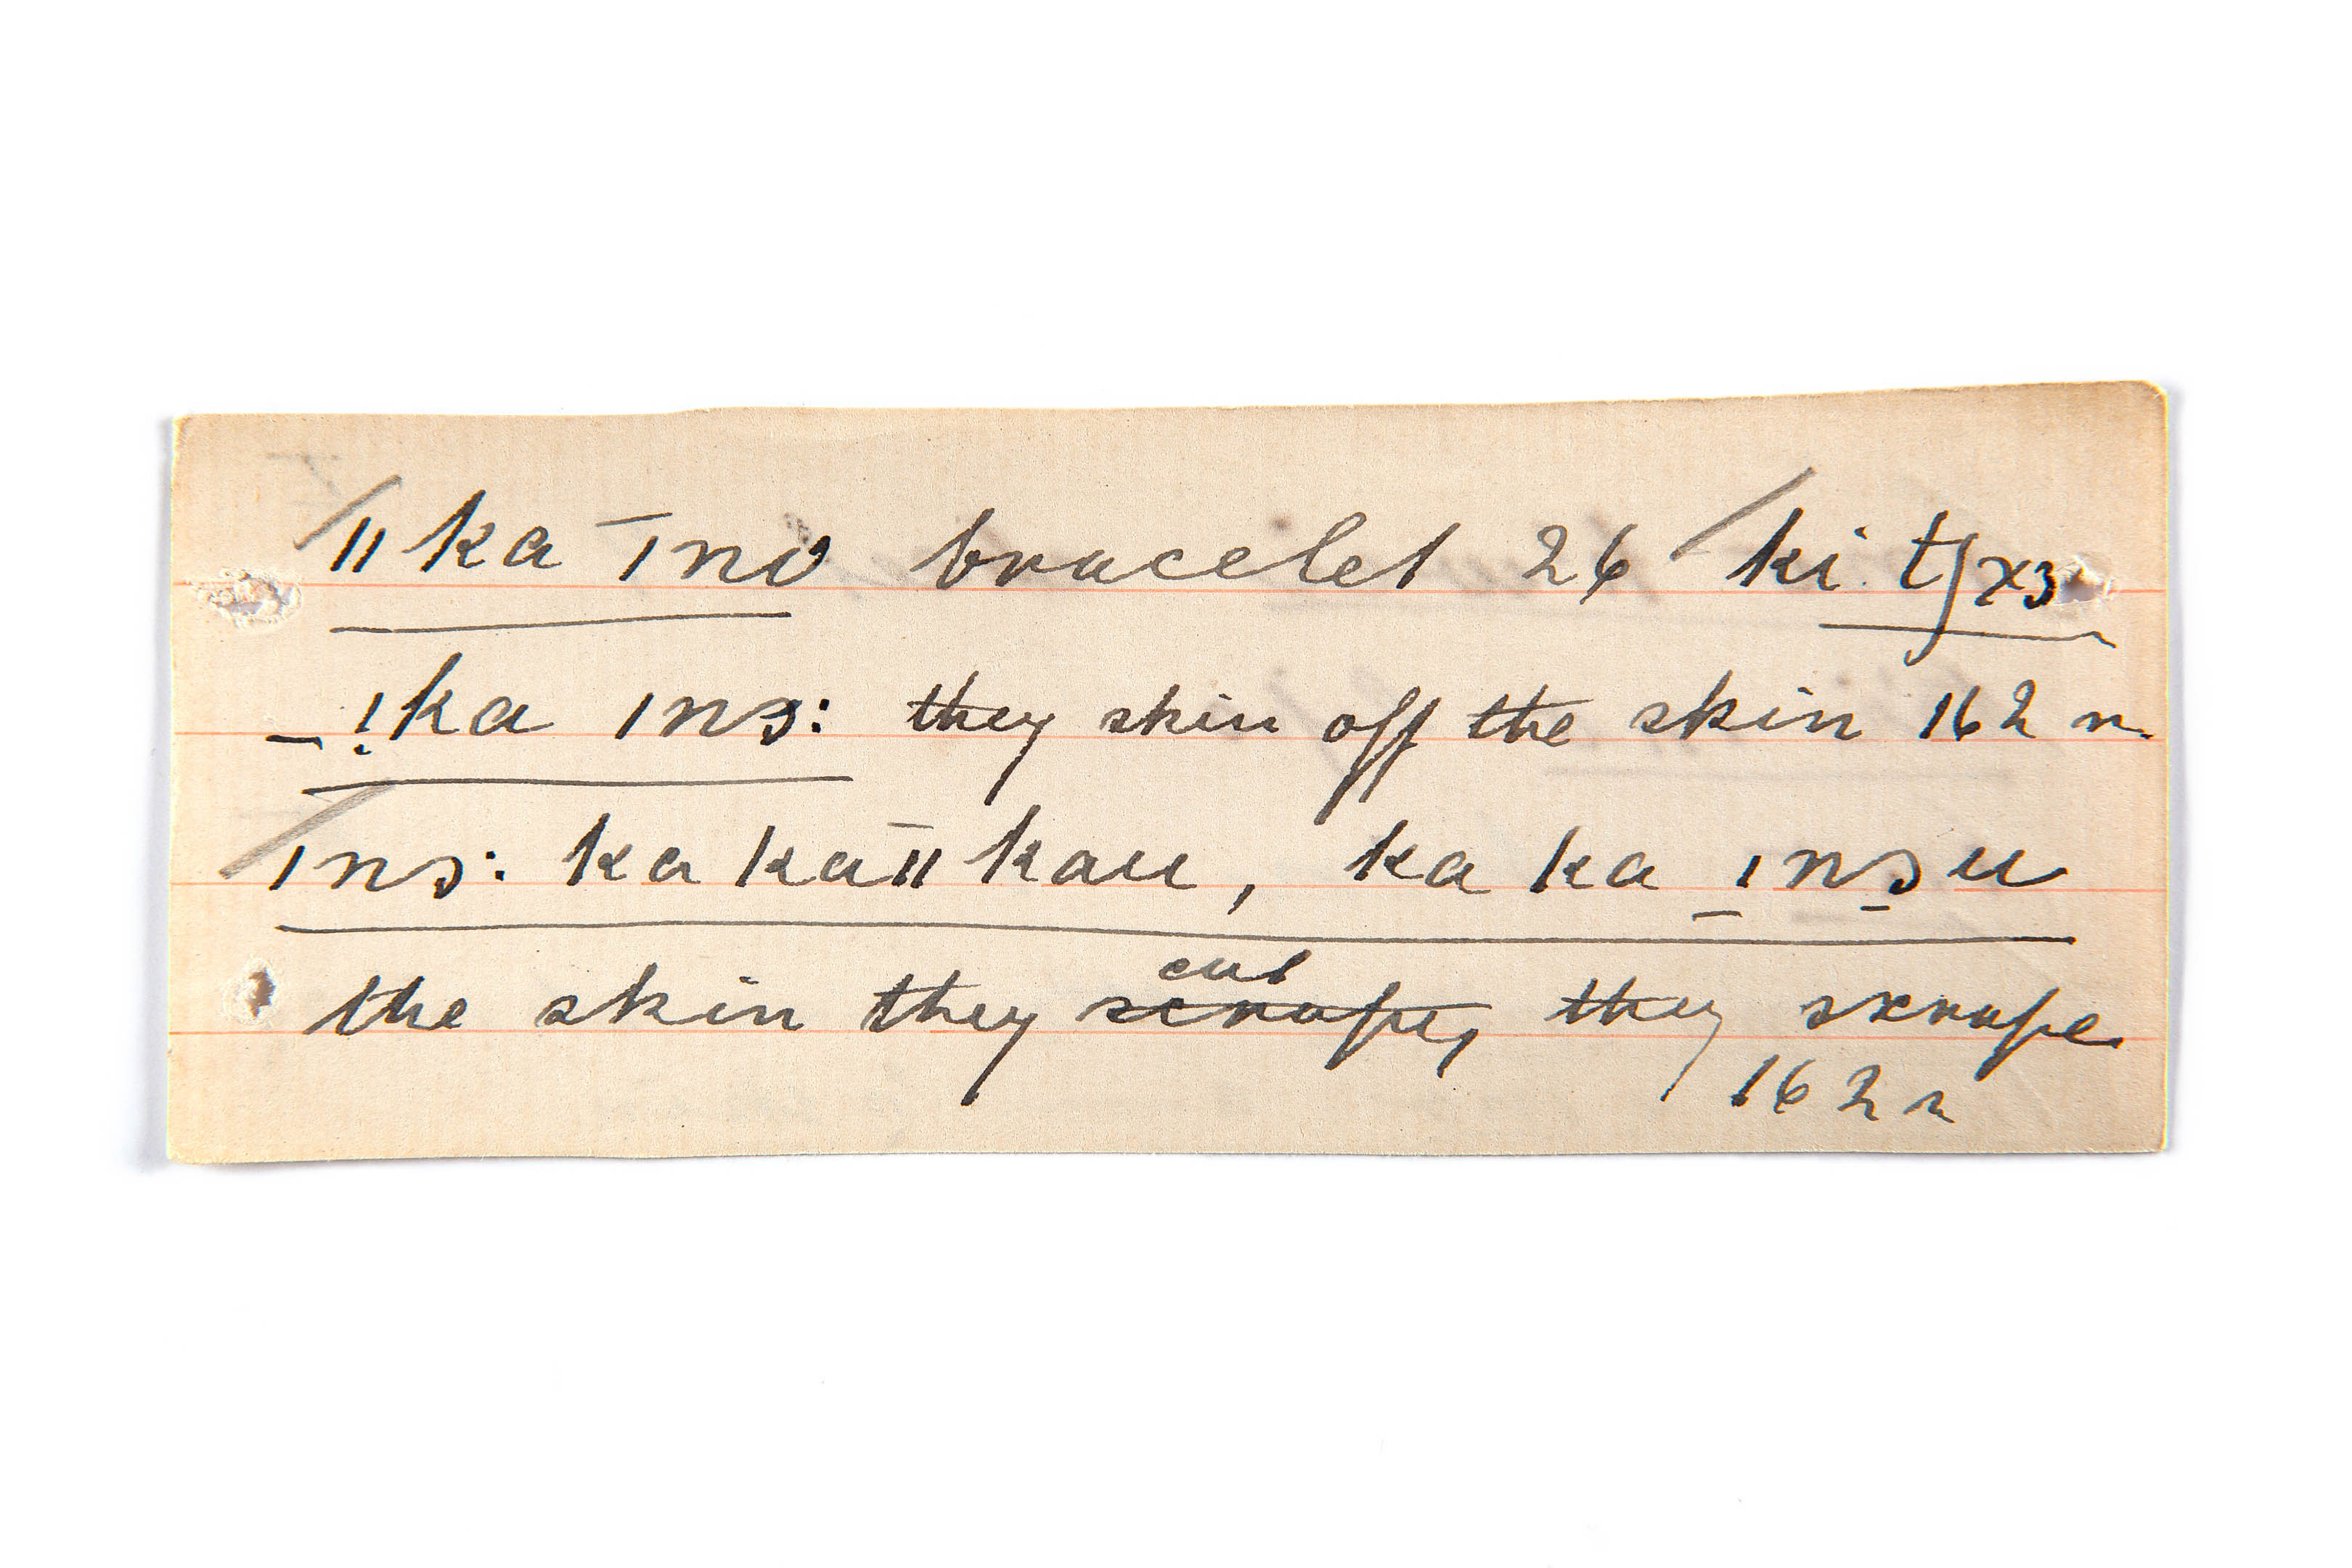 ǁka ǀnʋ bracelet 26 ki tʃxɜ
– ǃka ǀnɜ: they skin off the skin 162 r.
ǀnɜ: ka ka ǁkau, ka ka ǀnɜu
the skin they ~~scrape,~~ cut they scrape
162 r